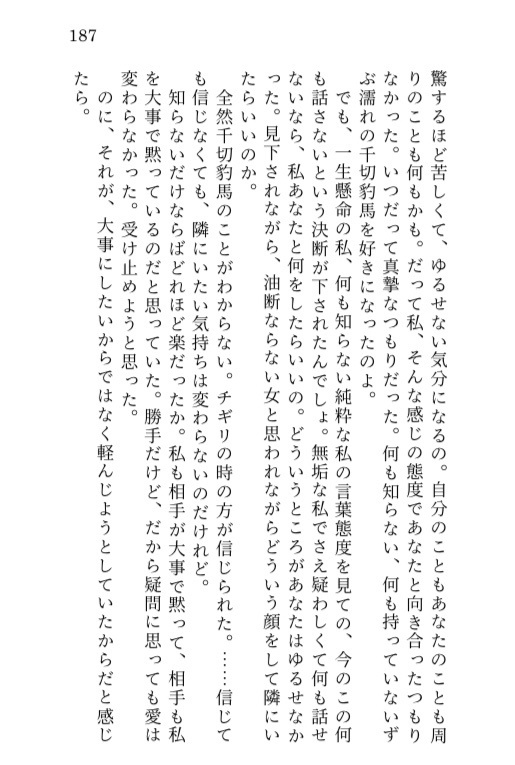 187
驚するほど苦しくて、ゆるせない気分になるの。自分のこともあなたのことも周
りのことも何もかも。だって私、そんな感じの態度であなたと向き合ったつもり
なかった。いつだって真摯なつもりだった。何も知らない、何も持っていないず
ぶ濡れの千切豹馬を好きになったのよ。
でも、一生懸命の私、何も知らない純粋な私の言葉態度を見ての、今のこの何
も話さないという決断が下されたんでしょ。無垢な私でさえ疑わしくて何も話せ
ないなら、私あなたと何をしたらいいの。どういうところがあなたはゆるせなか
った。見下されながら、油断ならない女と思われながらどういう顔をして隣にい
たらいいのか。
全然千切豹馬のことがわからない。チギリの時の方が信じられた。……信じて
も信じなくても、隣にいたい気持ちは変わらないのだけれど。
知らないだけならばどれほど楽だったか。私も相手が大事で黙って、相手も私
を大事で黙っているのだと思っていた。勝手だけど、だから疑問に思っても愛は
変わらなかった。受け止めようと思った。
のに、それが、大事にしたいからではなく軽んじようとしていたからだと感じ
たら。